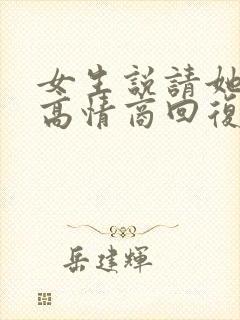 女生説請她
高情商回復
岳建輝